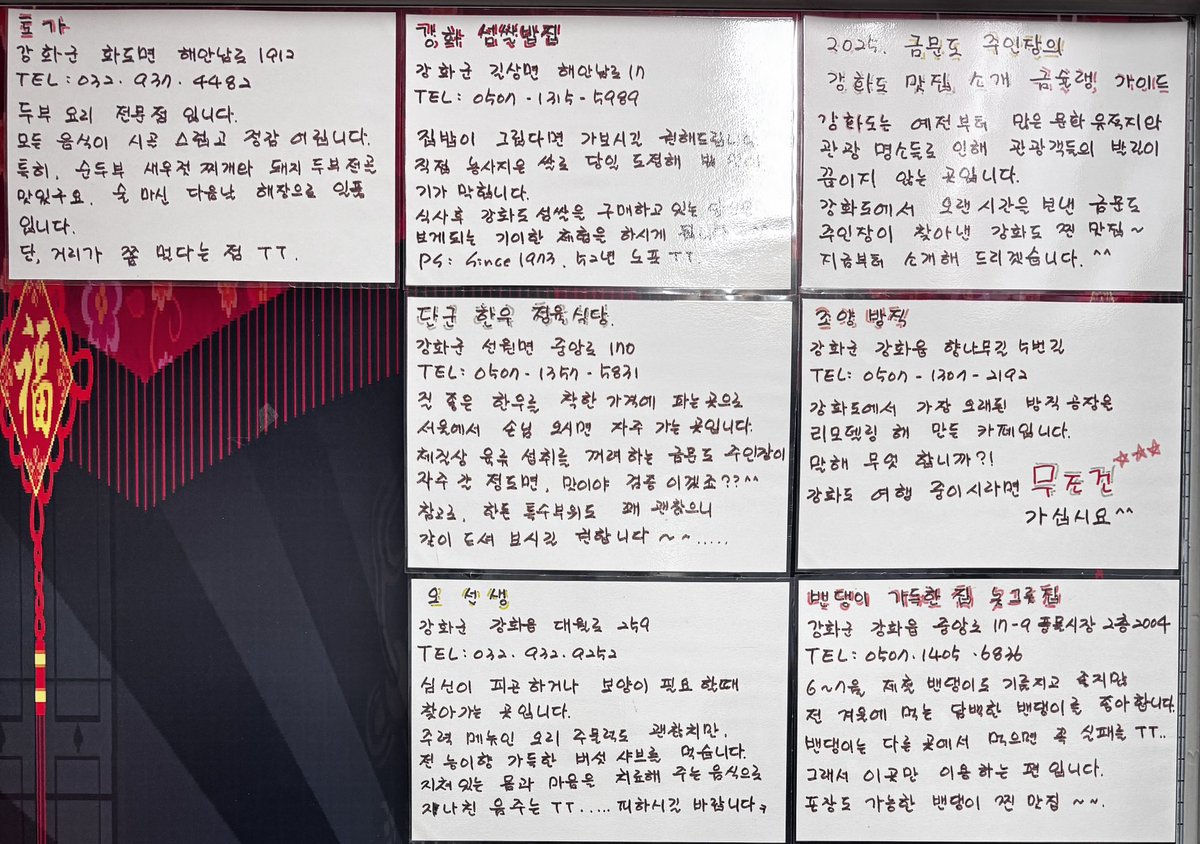 토가
강화군 화도면 해안남로 1912
TEL : 032. 937. 4482
두부 요리 전문점 입니다.
모든 음식이 시골 스럽고 정감 어립니다.
특히, 순두부 새우젓 찌개와 돼지 두부전골
맛있구요. 술 마신 다음날 해장으로 일품
입니다.
단, 거리가 쫌 멀다는 점 TT.
강화 섬쌀밥집
강화군 길상면 해안남로 17
TEL : 0507 - 1315 - 5989
집밥이 그립다면 가보시길 권해드립니다
직접 농사지은 쌀로 당일 도정해
기가 막힙니다.
식사후 강화도 섬쌀을 구매하고 있는
보게되는 기이한 체험을 하시게
PS : Since 1973. 52년 노포 TT.
2025. 금문도 주인장의
강화도 맛집 소개 금슐랭 가이드
강화도는 예전부터 많은 문화 유적지와
관광 명소들로 인해 관광객들의 발길이
끊이지 않는 곳입니다.
강화도에서 오랜 시간을 보낸 금문도
주인장이 찾아낸 강화도 찐 맛집~
지금부터 소개해 드리겠습니다. ^^
단군 한우 정육식당.
강화군 선원면 중앙로 170
TEL : 0507 - 1357 - 5831
질 좋은 한우를 착한 가격에 파는곳으로
서울에서 손님 오시면 자주 가는 곳입니다.
체질상 육류 섭취를 꺼려하는 금문도 주인장이
자주 갈 정도면, 맛이야 검증 이겠죠??^^
참고로, 한돈 특수부위도 꽤 괜찮으니
같이 드셔 보시길 권합니다 ~~.....
조양 방직
강화군 강화읍 향나무길 5번길
TEL : 0507 - 1307 - 2192
강화도에서 가장 오래된 방직 공장을
리모델링 해 만든 카페입니다.
말해 무엇 합니까?!
강화도 여행 중이시라면 무조건☆☆☆
가십시요^^
오 선생
강화군 강화읍 대월로 259
TEL : 032. 932. 9252
심신이 피곤하거나 보양이 필요할때
찾아가는 곳입니다.
주력 메뉴인 오리 주물럭도 괜찮지만.
전 능이향 가득한 버섯 샤브를 먹습니다.
지쳐있는 몸과 마음을 치료해 주는 음식으로
지나친 음주는 TT..... 피하시길 바랍니다.
밴댕이 가득한 집 못그른집
강화군 강화읍 중앙로 17-9 풍물시장 2층2004
TEL : 0507. 1405 . 6836
6~7월 제철 밴댕이도 기름지고 좋지만
전 겨울에 먹는 담백한 밴댕이를 좋아합니다.
밴댕이는 다른 곳에서 먹으면 꼭 실패를 TT..
그래서 이곳만 이용하는 편 입니다.
포장도 가능한 밴댕이 찐 맛집 ~~.
福